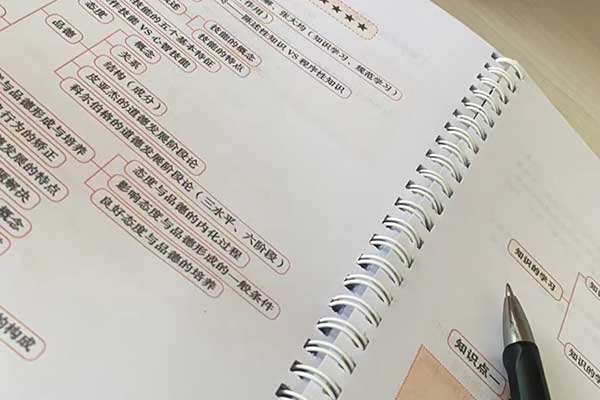 态度
品德
技能的五个基本特征
操作技能 VS 心智技能
技能的概念
技能的特点
作用）
陈述性知识 VS 程序性知识
张大均（知识学习、规范学习）
概念
关系
结构（成分）
皮亚杰的道德发展阶段论
科尔伯格的道德发展阶段论（三水平、六阶段）
态度与品德的内化过程
影响态度与品德形成的一般条件
良好态度与品德的培养
与品德形成与培养
行为的矫正
发展的特点
题解决
概念
的构成
知识的学习
知识点一
知识的学